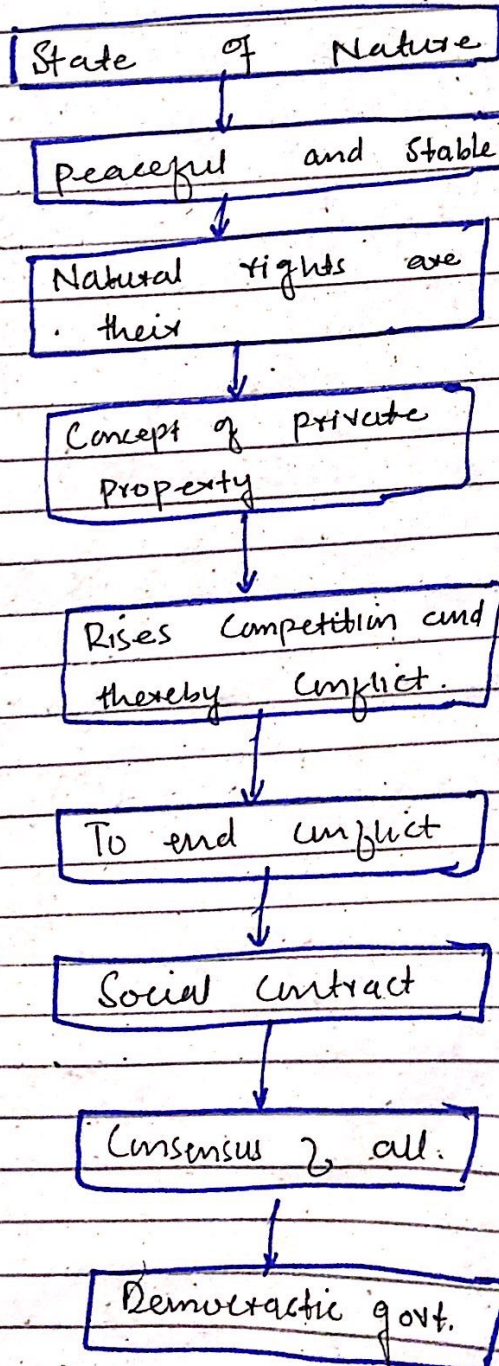 State of Nature
peaceful and stable
Natural rights are
their
Concept of private
property
Rises competition and
thereby conflict.
To end conflict
Social contract
Consensus of all.
Democractic govt.